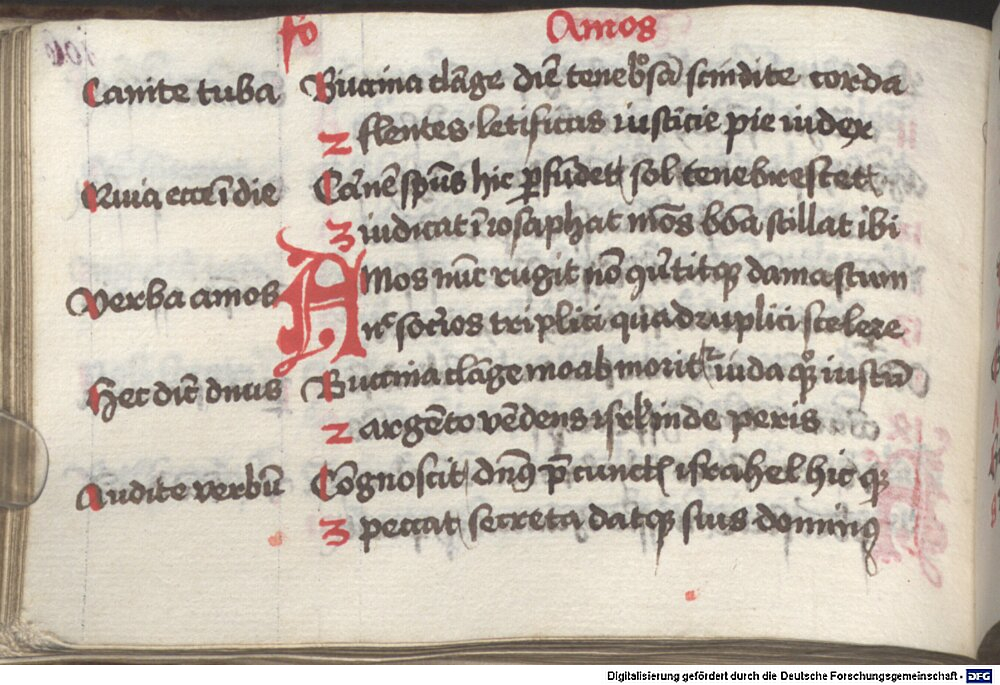 fo Amos
104
Canite tuba Buccina clāge diē tenebͦsā scindite corda
2 flentes letificas iusticie pie iudex
Quia ecce ī die Carnē spūs hic ꝑfūdet sol tenebrescet
3 iudicat ī iosaphat mōs bōa stillat ibi
Verba amos AMos nūc rugit nō damascum
socios triplici quadruplici scelere
Hec dic̄ dnus Buccina clāge moab morit iuda iustū
2 argēto vēdens isrl inde peris
Audite verbū Cōgnoscit dn̄s p̄ cunctis israhel hic qꝫ
3 peccat secreta datqꝫ suis dominus
Digitalisierung gefördert durch die Deutsche Forschungsgemeinschaft - DFG